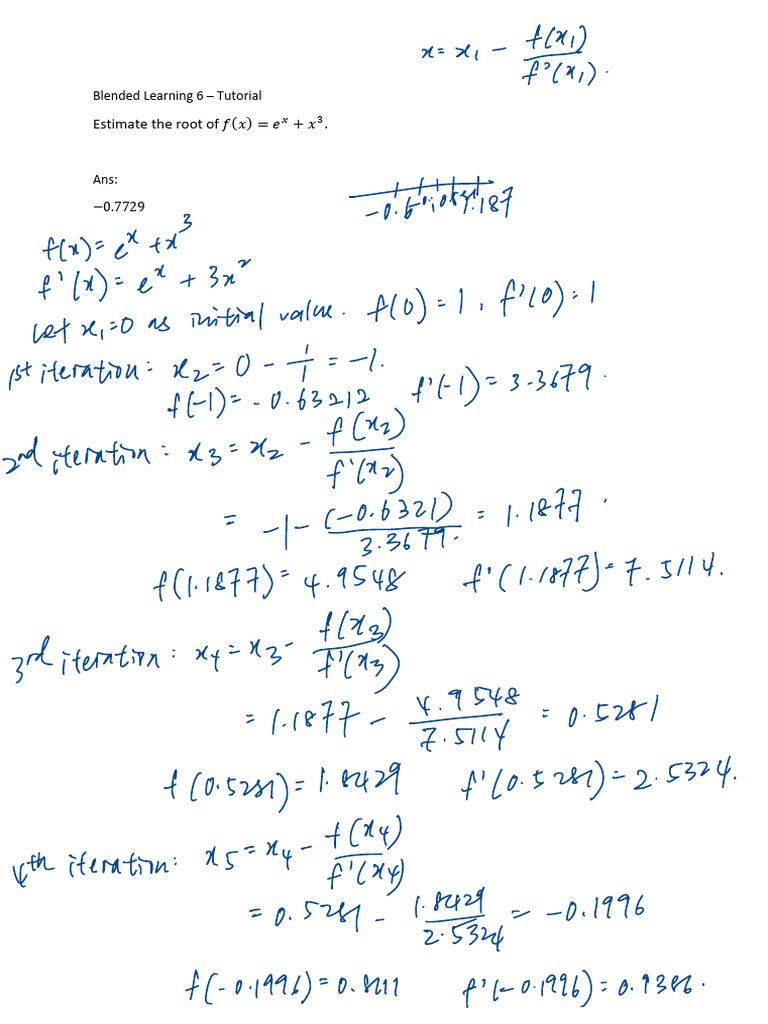 x = x₁ − f(x₁)/f'(x₁).
Blended Learning 6 – Tutorial
Estimate the root of f(x) = eˣ + x³.
Ans:
−0.7729
f(x) = eˣ + x³
f'(x) = eˣ + 3x²
Let x₁=0 as initial value. f(0) = 1, f'(0) = 1
1st iteration: x₂ = 0 − 1/1 = −1.
f(−1) = −0.63212 f'(−1) = 3.3679.
2nd iteration: x₃ = x₂ − f(x₂)/f'(x₂)
= −1 − (−0.6321)/3.3679. = 1.1877.
f(1.1877) = 4.9548 f'(1.1877) = 7.5114.
3rd iteration: x₄ = x₃ − f(x₃)/f'(x₃)
= 1.1877 − 4.9548/7.5114 = 0.5281
f(0.5281) = 1.8429 f'(0.5281) = 2.5324.
4th iteration: x₅ = x₄ − f(x₄)/f'(x₄)
= 0.5281 − 1.8429/2.5324 = −0.1996
f(−0.1996) = 0.8111 f'(−0.1996) = 0.9386.